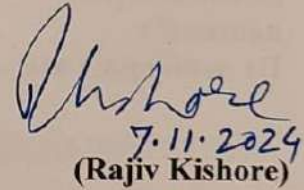 Kishore
7.11.2024
(Rajiv Kishore)